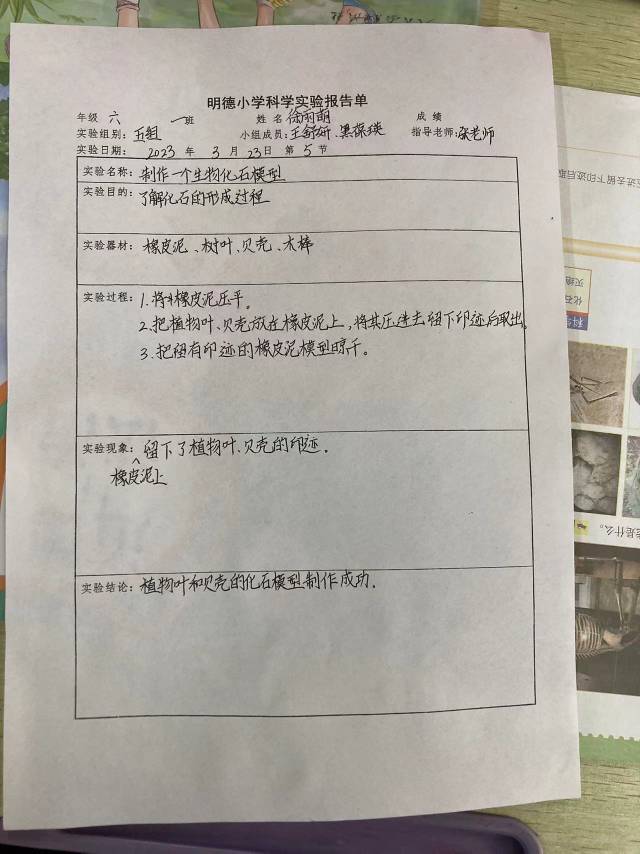 明德小学科学实验报告单
年级 六 一班 姓名 徐雨萌 成绩
实验组别: 五组 小组成员: 王舒妍、 指导老师: 老师
实验日期: 2023 年 3 月 23 日 第 5 节
实验名称: 制作一个生物化石模型
实验目的: 了解化石的形成过程
实验器材: 橡皮泥、树叶、贝壳、木棒
实验过程: 1.将橡皮泥压平。
2.把植物叶、贝壳放在橡皮泥上,将其压进去留下印迹后取出。
3.把留有印迹的橡皮泥模型晾干。
实验现象: 留下了植物叶、贝壳的印迹.
橡皮泥上
实验结论: 植物叶和贝壳的化石模型制作成功.
压进去留下印迹后取
化石
灭绝
是什么。